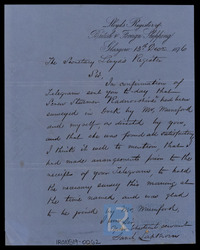 Lloyd's Register
British & Foreign Shipping
Glasgow 13th Decr 1876
The Secretary Lloyds Register
Sir,
In confirmation of
Telegram sent you to day that
Screw Steamer had been
surveyed in Dock by Mr Mumford
and myself as directed by you,
and that she was found also satisfactory
I think it well to mention that I
had made arrangements prior to the
receipt of your Telegram to hold
the necessary survey this morning at
the time named and was glad
to be joined by Mr Mumford.
I am
Your obedient servant
IRON559-0066